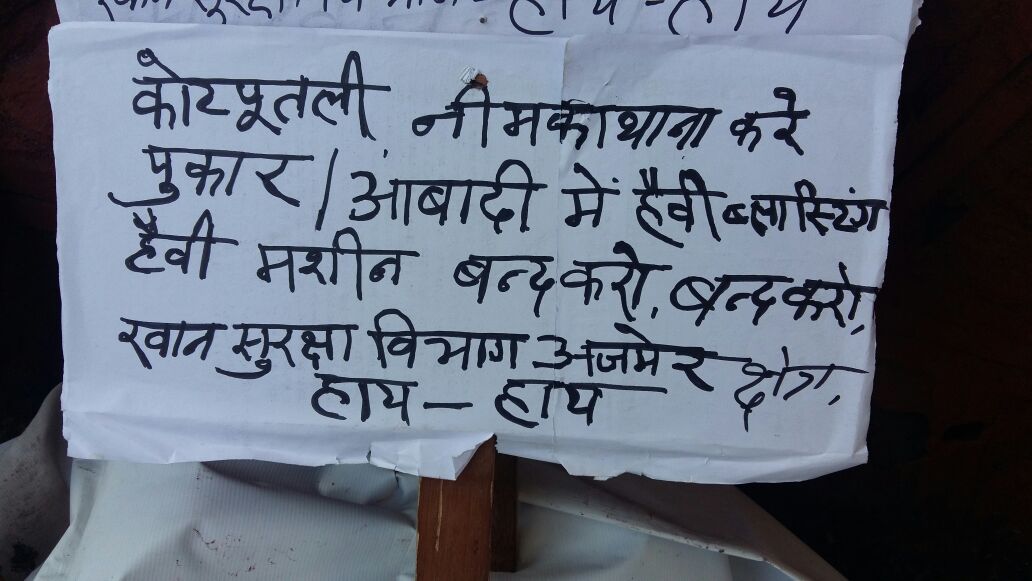 खान सुरक्षा विभाग हाय - हाय
कोटपूतली नीमकाथाना करे
पुकार / आंबादी में हैवी ब्लास्टिंग
हैवी मशीन बन्द करो, बन्द करो,
खान सुरक्षा विभाग अजमेर क्षेत्र,
हाय - हाय